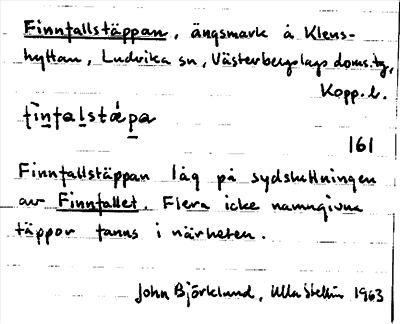 Finnfallstäppan, ängsmark å Klens-
hyttan, Ludvika sn, Västerbergslags doms.tg,
Kopp. l.
fìnfalstǽpa
161
Finnfallstäppan låg på sydsluttningen
av Finnfallet. Flera icke namngivna
täppor fanns i närheten.
John Björklund, Ulla 1963